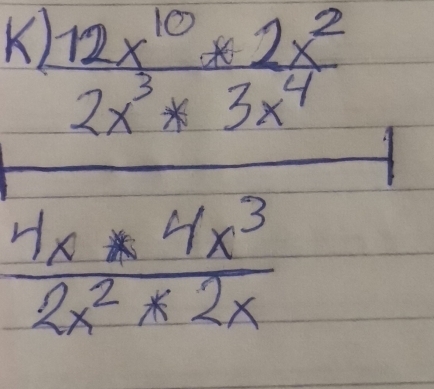 K) 12x¹⁰ * 2x²
2x³ * 3x⁴
4x * 4x³
2x² * 2x